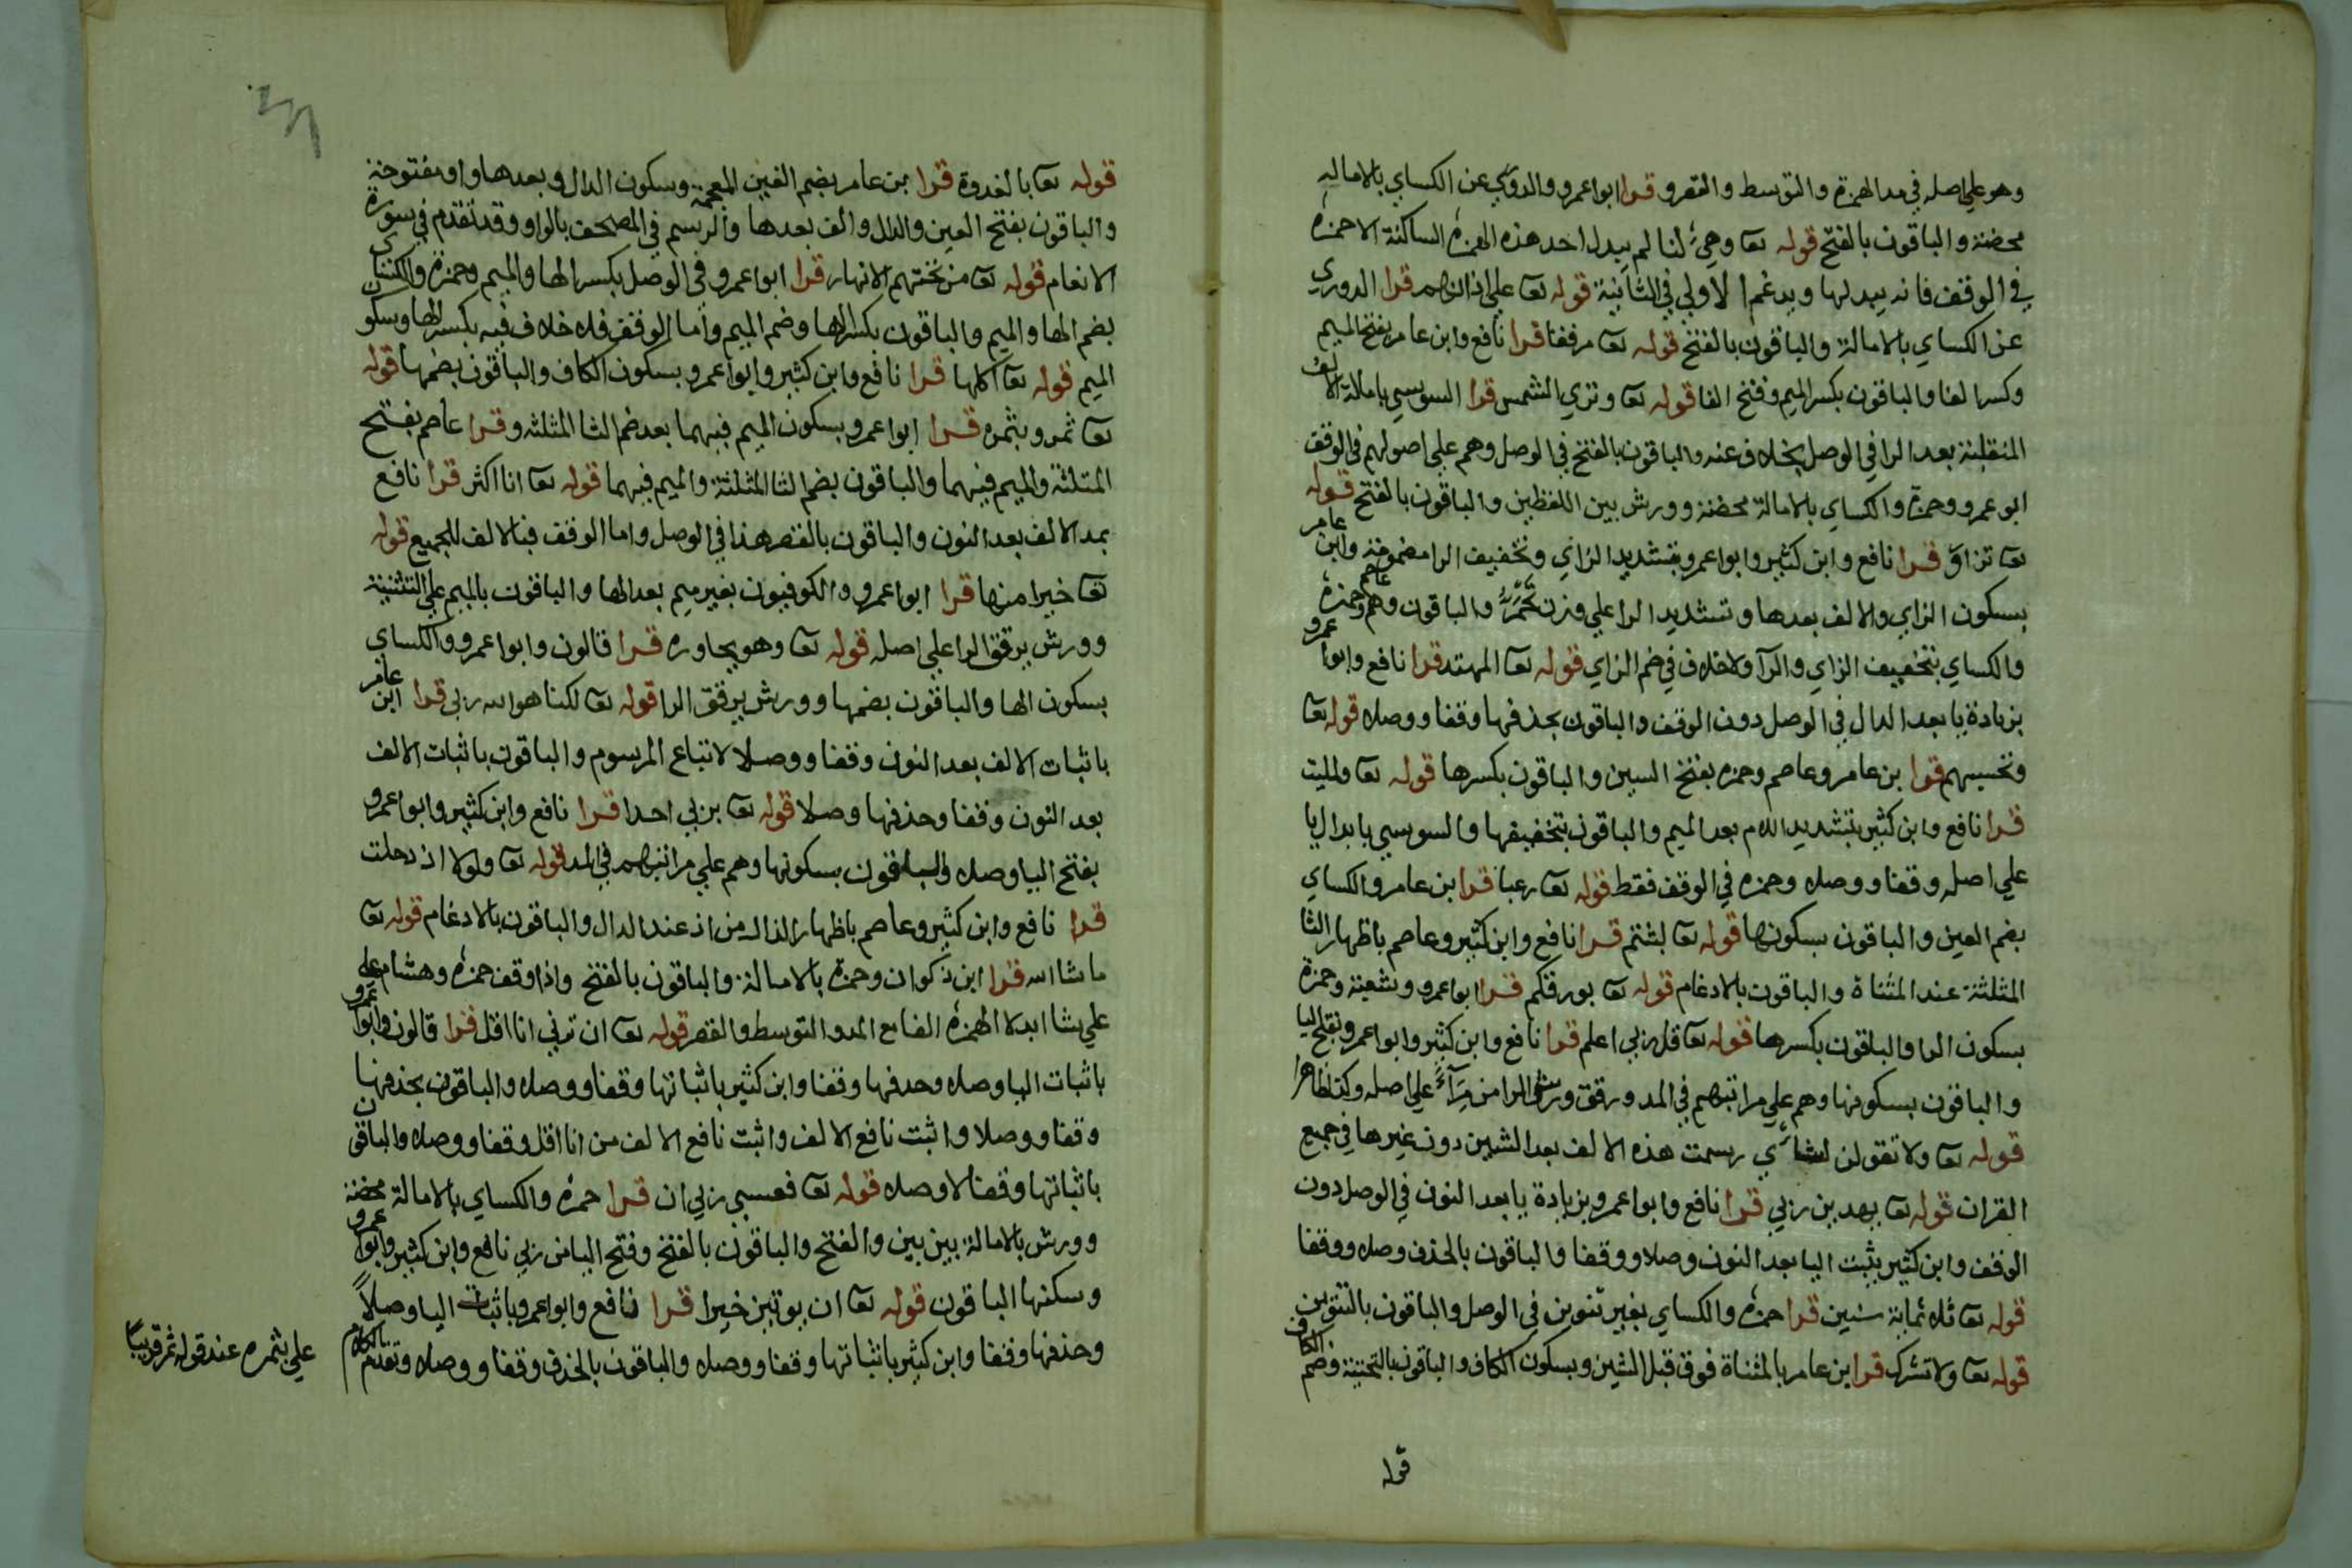 وهو علي اصله في مد الهمزة والتوسط والقصر قرا ابوا عمرو والدوري عن الكساي بالاماله
محضنة والباقون بالفتح قوله تعا وهيئ لنا لم يبدل احد هذه الهمزه الساكنة الا حمزه
في الوقف فانه يبدلها ويدغم الاولي في الثانية قوله تعا علي اذانهم قرا الدوري
عن الكساي بالامالة والباقون بالفتح قوله تعا مرفقا قرا نافع وابن عامر بفتح الميم
وكسر الفا والباقون بكسر الميم وفتح الفا قوله تعا وتري الشمس قرا السوسي بامالة الالف
المنقلبة بعد الرا في الوصل بخلاف عنه والباقون بالفتح في الوصل وهم علي اصولهم في الوقف
ابو عمرو وحمزة والكساي بالامالة محضنة وورش بين اللفظين والباقون بالفتح قوله
تعا تزاور قرا نافع وابن كثير وابوا عمرو بتشديد الزاي وتخفيف الرا مضمومة وابن عامر
بسكون الزاي والالف بعدها وتشديد الرا علي وزن تحمر والباقون وهم عاصم وحمزه
والكساي بتخفيف الزاي والرا ولا خلاف في ضم الزاي قوله تعا المهتد قرا نافع وابوا عمرو
بزيادة يا بعد الدال في الوصل دون الوقف والباقون بحذفها وقفا ووصلا قوله تعا
وتحسبهم قرا بن عامر وعاصم وحمزه بفتح السين والباقون بكسرها قوله تعا ولمليت
قرا نافع وابن كثير بتشديد اللام بعد الميم والباقون بتخفيفها والسوسي بابدال يا
علي اصله وقفا ووصلا وحمزه في الوقف فقط قوله تعا رعبا قرا بن عامر والكساي
بضم العين والباقون بسكونها قوله تعا لبثتم قرا نافع وابن كثير وعاصم باظهار الثا
المثلثة عند المثناة والباقون بالادغام قوله تعا بورقكم قرا ابوا عمرو وشعبة وحمزة
بسكون الرا والباقون بكسرها قوله تعا قل ربي اعلم قرا نافع وابن كثير وابوا عمرو بفتح اليا
والباقون بسكونها وهم علي مراتبهم في المد ورقق ورش الرا من مراء علي اصله وكذا ظاهرا
قوله تعا ولا تقولن لشاي رسمت هذه الالف بعد الشين دون غيرها في جميع
القران قوله تعا يهدين ربي قرا نافع وابوا عمرو بزيادة يا بعد النون في الوصل دون
الوقف وابن كثير يثبت اليا بعد النون وصلا ووقفا والباقون بالحذف وصلا ووقفا
قوله تعا ثلاثماية سنين قرا حمزه والكساي بغير تنوين في الوصل والباقون بالتنوين
قوله تعا ولا تشرك قرا ابن عامر بالمثناة فوق قبل الشين وبسكون الكاف والباقون بالتحتية وضم الكاف
قوله
قوله تعا بالغدوة قرا بن عامر بضم الغين المعجمة وسكون الدال وبعدها واو مفتوحة
والباقون بفتح الغين والدال والف بعدها والرسم في المصحف بالواو وقد تقدم في سورة
الانعام قوله تعا من تحتهم الانهار قرا ابوا عمرو في الوصل بكسر الها والميم وحمزة والكساي
بضم الها والميم والباقون بكسر الها وضم الميم واما الوقف فلا خلاف فيه بكسر الها وسكون
الميم قوله تعا اكلها قرا نافع وابن كثير وابوا عمرو بسكون الكاف والباقون بضمها قوله
تعا ثمر وبثمره قرا ابوا عمرو بسكون الميم فيهما بعد ضم الثا المثلثه وقرا عاصم بفتح
المثلثة والميم فيهما والباقون بضم الثا المثلثة والميم فيهما قوله تعا انا اكثر قرا نافع
بمد الالف بعد النون والباقون بالقصر هذا في الوصل واما الوقف فبالالف للجميع قوله
تعا خيرا منها قرا ابوا عمرو والكوفيون بغير ميم بعد الها والباقون بالميم علي التثنية
وورش يرقق الرا علي اصله قوله تعا وهو يحاوره قرا قالون وابوا عمرو والكساي
بسكون الها والباقون بضمها وورش يرقق الرا قوله تعا لكنا هو الله ربي قرا ابن عامر
باثبات الالف بعد النون وقفا ووصلا لاتباع المرسوم والباقون باثبات الالف
بعد النون وقفا وحذفها وصلا قوله تعا بربي احدا قرا نافع وابن كثير وابوا عمرو
بفتح اليا وصلا والباقون بسكونها وهم علي مراتبهم في المد قوله تعا ولولا اذ دخلت
قرا نافع وابن كثير وعاصم باظهار الذال من اذ عند الدال والباقون بالادغام قوله تعا
ما شا الله قرا ابن ذكوان وحمزة بالامالة والباقون بالفتح واذا وقف حمزه وهشام علي
علي شا ابدلا الهمزه الفا مع المد والتوسط والقصر قوله تعا ان ترني انا اقل قرا قالون وابوا عمرو
باثبات اليا وصلا وحدفها وقفا وابن كثير باثباتها وقفا ووصلا والباقون بحذفها
وقفا ووصلا واثبت نافع الالف واثبت نافع الالف من انا اقل وقفا ووصلا والباقون
باثباتها وقفا لا وصلا قوله تعا فعسي ربي ان قرا حمزه والكساي بالامالة محضنة
وورش بالامالة بين بين والفتح والباقون بالفتح وفتح اليا من ربي نافع وابن كثير وابوا عمرو
وسكنها الباقون قوله تعا ان يوتين خيرا قرا نافع وابوا عمرو باثبات اليا وصلاً
وحذفها وقفا وابن كثير باثباتها وقفا ووصلا والباقون بالحذف وقفا ووصلا وتقدم الكلام
علي بثمره عند قوله ثمر قريبًا